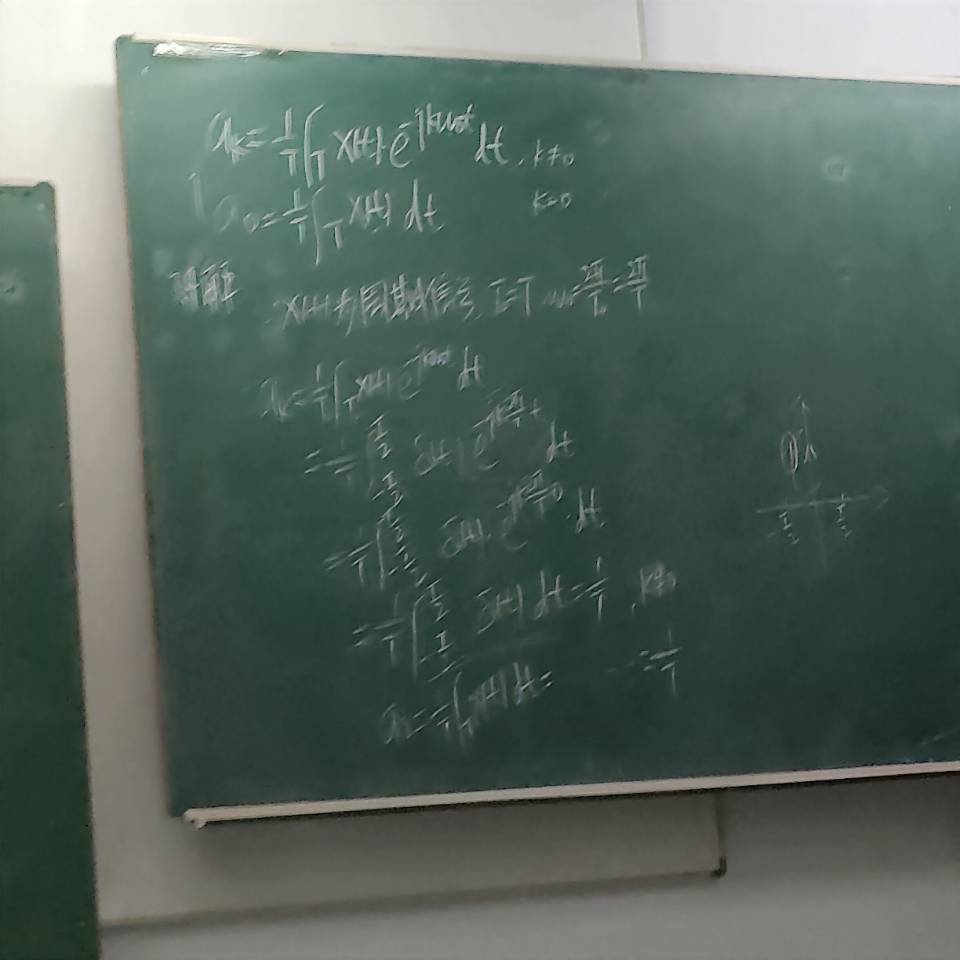 a_k = 1/T ∫_T x(t) e^{-jkω₀t} dt, k≠0
a_0 = 1/T ∫_T x(t) dt k=0
解
x(t)为周期信号, T=T ω₀=2π/T=2π/T
a_k = 1/T ∫_T x(t) e^{-jkω₀t} dt
= 1/T ∫_{-T/2}^{T/2} δ(t) e^{-jk 2π/T t} dt
= 1/T ∫_{-T/2}^{T/2} δ(t) · e^{-jk 2π/T 0} · dt
= 1/T ∫_{-T/2}^{T/2} δ(t) dt = 1/T, k≠0
a_0 = 1/T ∫_T x(t) dt = ... = 1/T
-T/2 T/2